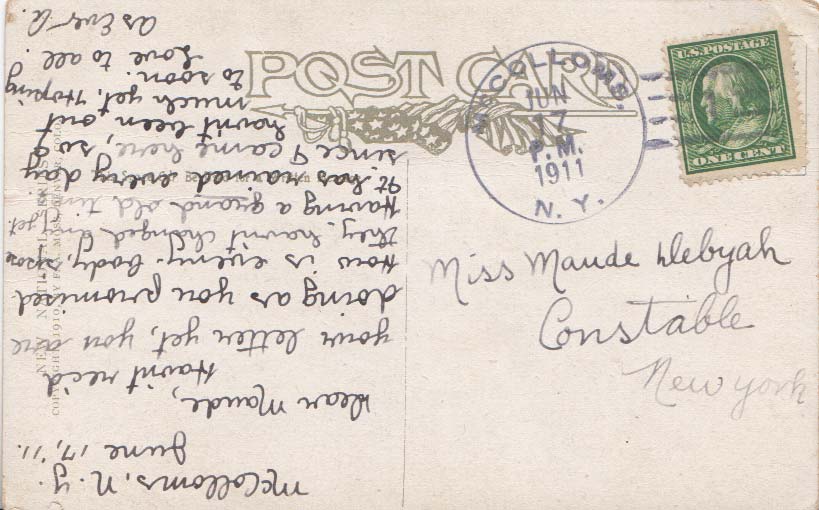 POST CARD
McCOLLOMS.
JUN
17
P.M.
1911
N.Y.
U.S. POSTAGE
ONE CENT
Miss Maude Debyah
Constable
New York
McColloms, N.Y.
June 17, '11.
Dear Maude,
Havn't rec'd
your letter yet, you are
doing as you promised
How is every-body, spose
they havn't changed any yet.
Having a grand old time
It has rained every day
since I came here, so
havn't been out
much yet. Hoping
to soon.
Love to all.
As Ever A.